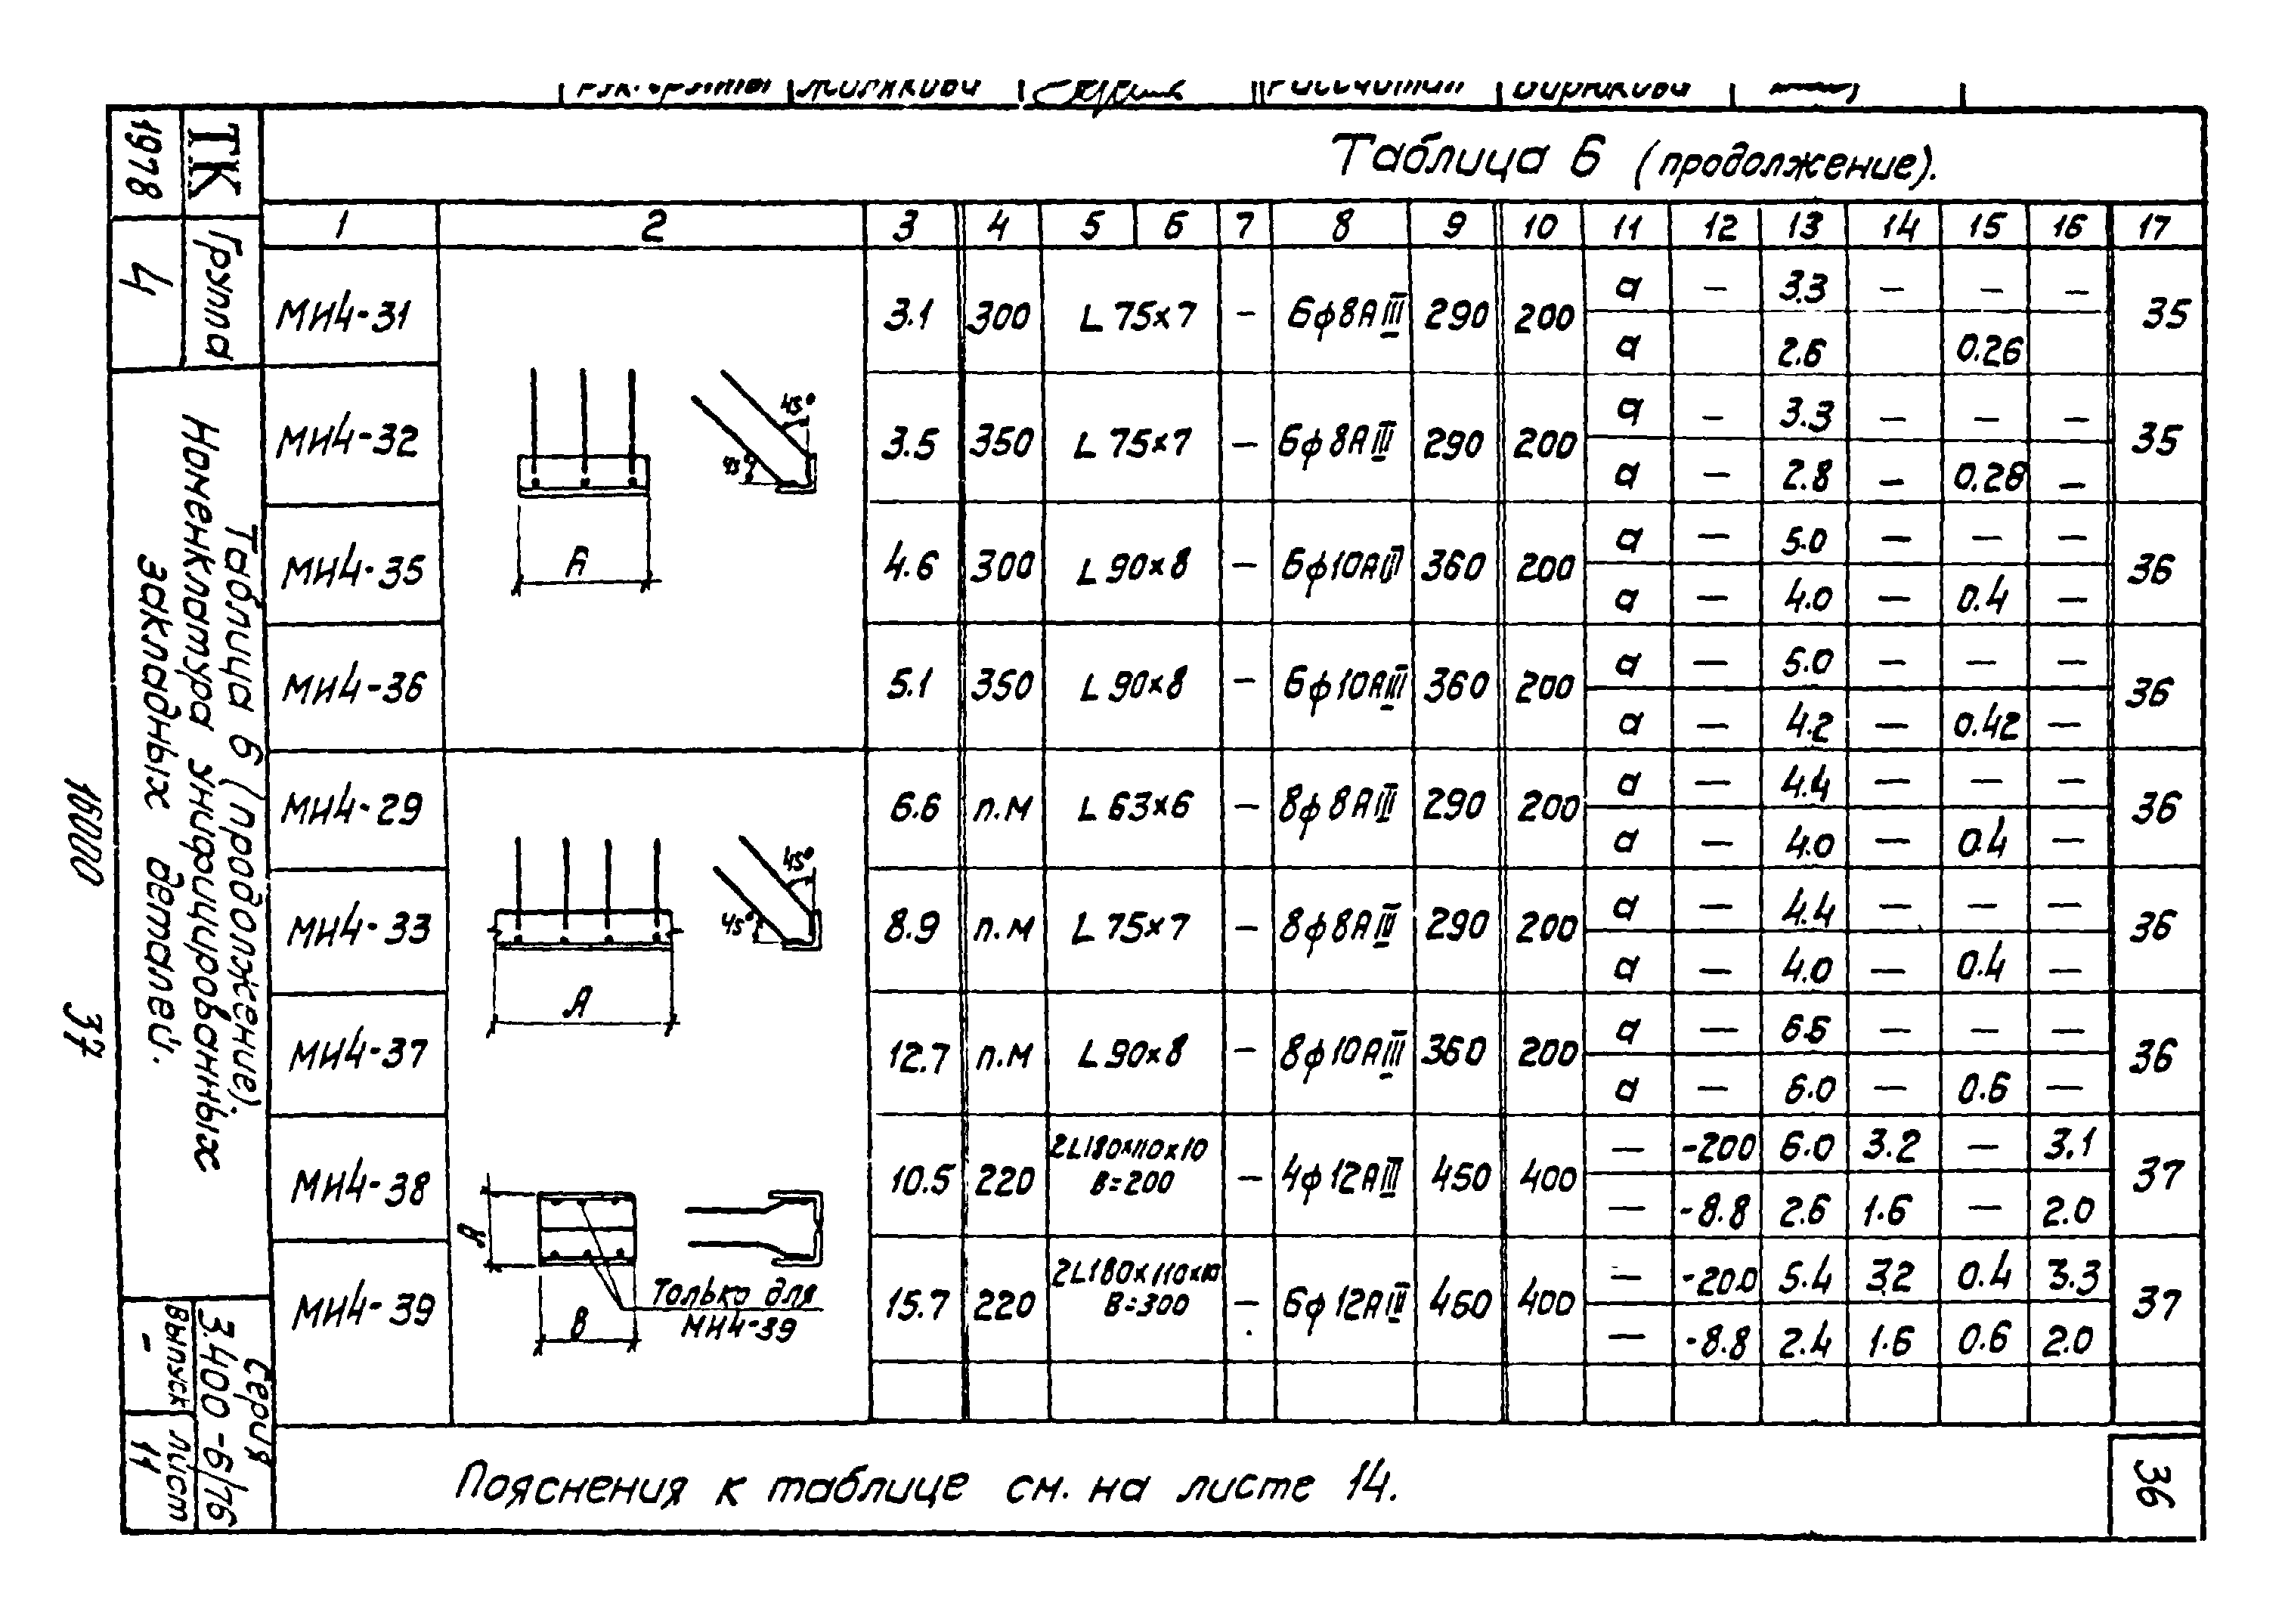 Таблица 6 (продолжение).
1 2 3 4 5 6 7 8 9 10 11 12 13 14 15 16 17
МН4-31 3.1 300 L 75×7 – 6ϕ8АIII 290 200 35
а – 3.3 – – –
а 2.6 0.26
МН4-32 3.5 350 L 75×7 – 6ϕ8АIII 290 200 35
а – 3.3 – – –
а – 2.8 – 0.28 –
МН4-35 4.6 300 L 90×8 – 6ϕ10АIII 360 200 36
а – 5.0 – – –
а – 4.0 – 0.4 –
МН4-36 5.1 350 L 90×8 – 6ϕ10АIII 360 200 36
а – 5.0 – – –
а – 4.2 – 0.42 –
45°
45°
А
МН4-29 6.6 п.м L 63×6 – 8ϕ8АIII 290 200 36
а – 4.4 – – –
а – 4.0 – 0.4 –
МН4-33 8.9 п.м L 75×7 – 8ϕ8АIII 290 200 36
а – 4.4 – – –
а – 4.0 – 0.4 –
МН4-37 12.7 п.м L 90×8 – 8ϕ10АIII 360 200 36
а – 6.6 – – –
а – 6.0 – 0.6 –
45°
45°
А
МН4-38 10.5 220 2L180×110×10 – 4ϕ12АIII 450 400 37
В=200
– -200 6.0 3.2 – 3.1
– -8.8 2.6 1.6 – 2.0
МН4-39 15.7 220 2L180×110×10 – 6ϕ12АIII 460 400 37
В=300
– -20.0 5.4 3.2 0.4 3.3
– -8.8 2.4 1.6 0.6 2.0
А
В
Только для
МН4-39
Пояснения к таблице см. на листе 14.
36
ТК
1978
Группа
4
Таблица 6 (продолжение).
Номенклатура унифицированных
закладных деталей.
Серия
3.400-6/76
Выпуск
-
Лист
11
16000 37